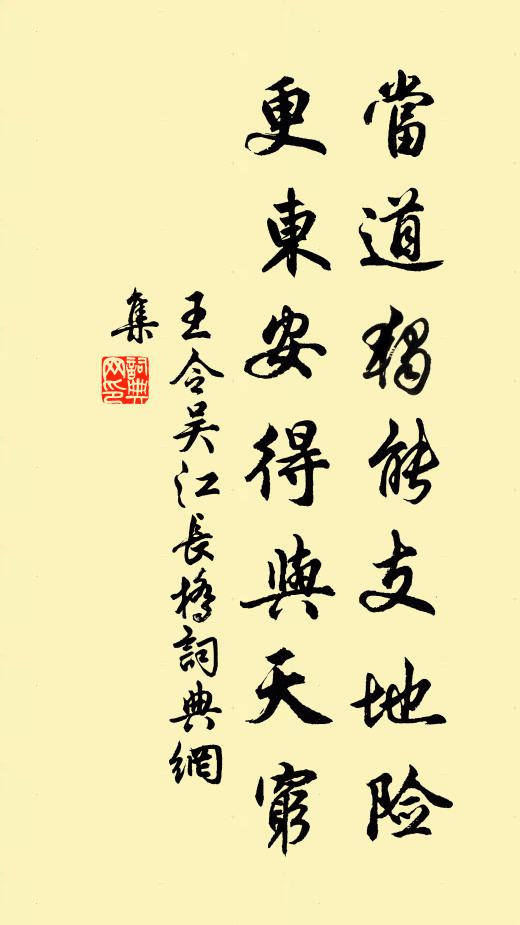 當道獨能支地险
更東安得與天窮
王令吴江長橋詞典網
集
詞典
网印